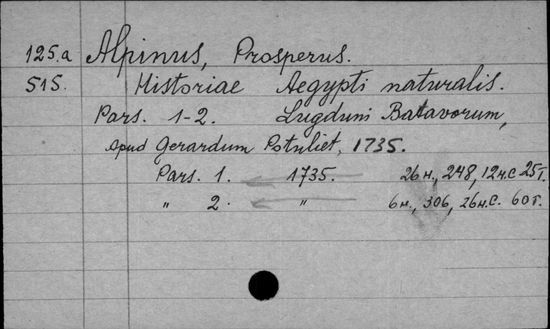 125.a Alpinus, Prosperus.
515. Historiae Aegypti naturalis.
Pars. 1-2. Lugduni Batavorum,
apud Gerardum Potvliet, 1735.
Pars. 1. 1735. 26 н., 248, 12 н.с. 25 т.
" 2. " 6 н., 306, 26 н.с. 60 т.